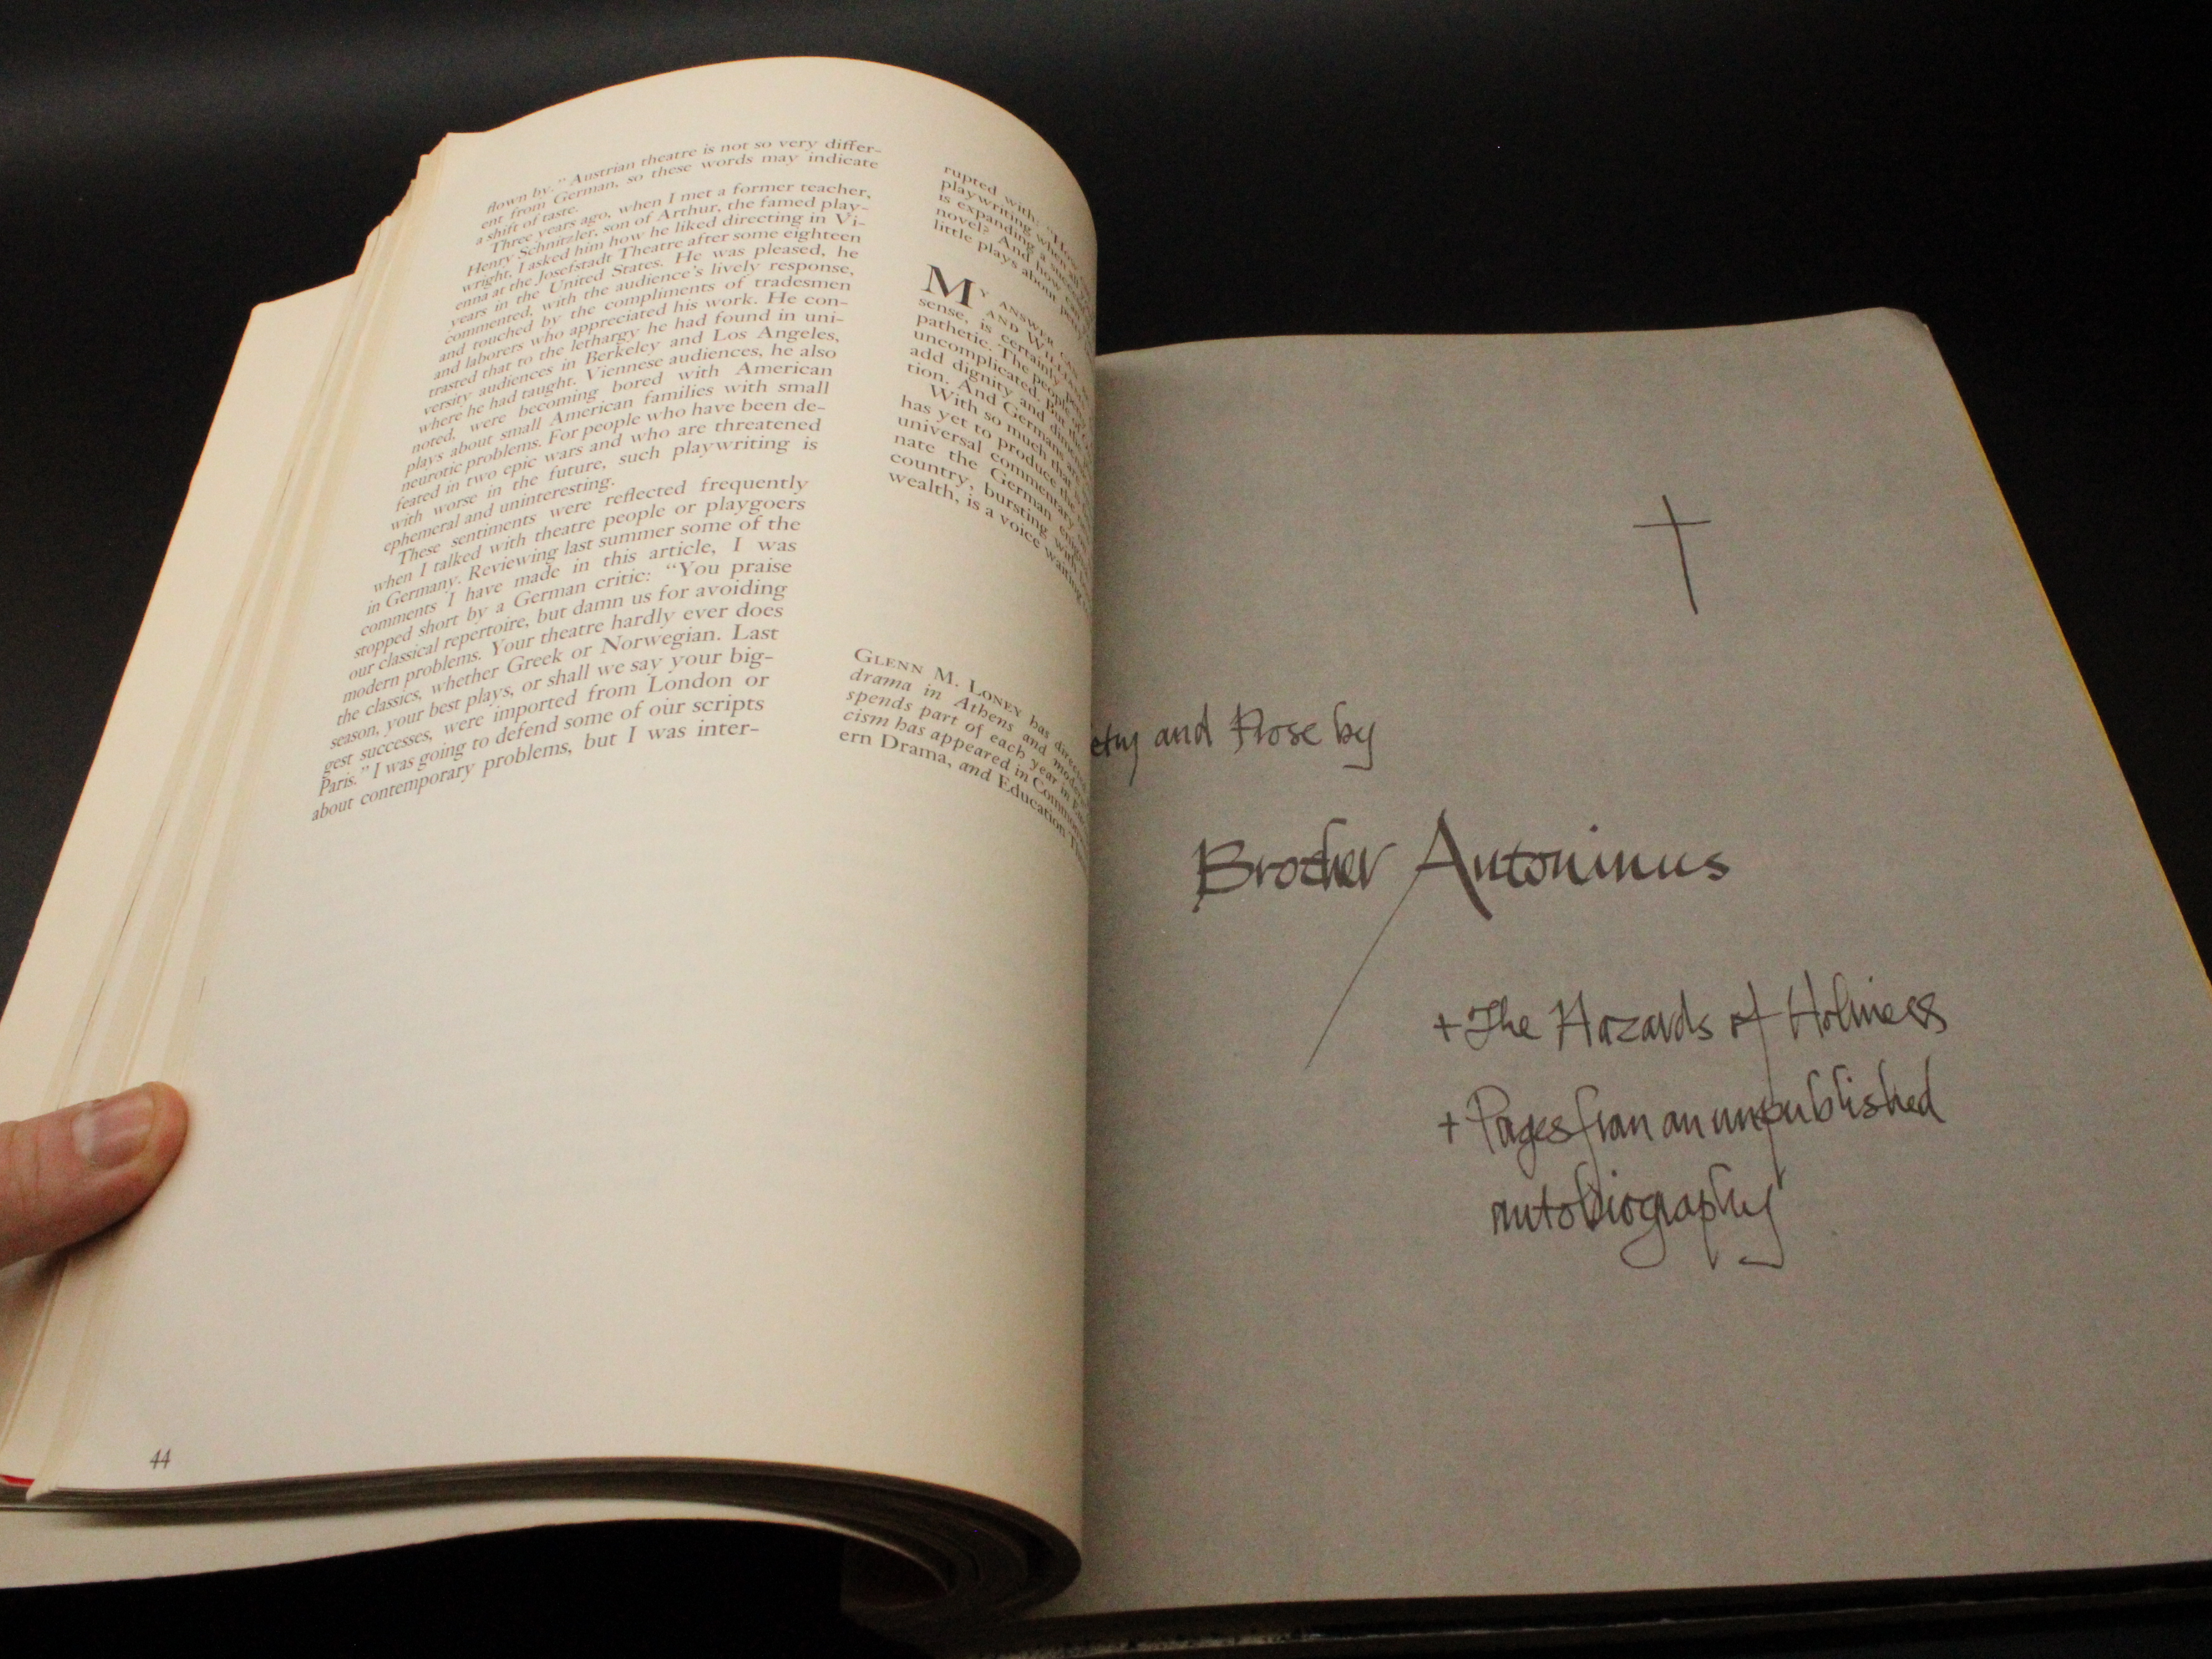 flown by." Austrian theatre is not so very differ-
ent from German, so these words may indicate
a shift of taste.
Three years ago, when I met a former teacher,
Henry Schnitzler, son of Arthur, the famed play-
wright, I asked him how he liked directing in Vi-
enna at the Josefstadt Theatre after some eighteen
years in the United States. He was pleased, he
commented, with the audience's lively response,
and touched by the compliments of tradesmen
and laborers who appreciated his work. He con-
trasted that to the lethargy he had found in uni-
versity audiences in Berkeley and Los Angeles,
where he had taught. Viennese audiences, he also
noted, were becoming bored with American
plays about small American families with small
neurotic problems. For people who have been de-
feated in two epic wars and who are threatened
with worse in the future, such playwriting is
ephemeral and uninteresting.
These sentiments were reflected frequently
when I talked with theatre people or playgoers
in Germany. Reviewing last summer some of the
comments I have made in this article, I was
stopped short by a German critic: "You praise
our classical repertoire, but damn us for avoiding
modern problems. Your theatre hardly ever does
the classics, whether Greek or Norwegian. Last
season, your best plays, or shall we say your big-
gest successes, were imported from London or
Paris." I was going to defend some of our scripts
about contemporary problems, but I was inter-
44
rupted with: "How
playwriting when all
is expanding a
novel? And how can
little plays about
MY ANSWER
AND
sense, is certainly
pathetic. The people of
uncomplicated. But the
add dignity and
tion. And Germans are
With so much that
has yet to produce the
universal commentary
nate the German
country, bursting with
wealth, is a voice waiting
GLENN M. LONEY has
drama in Athens and
spends part of each year in
cism has appeared in
ern Drama, and Education
etry and Prose by
Brother Antoninus
+ The Hazards of Holiness
+ Pages from an unpublished
autobiography